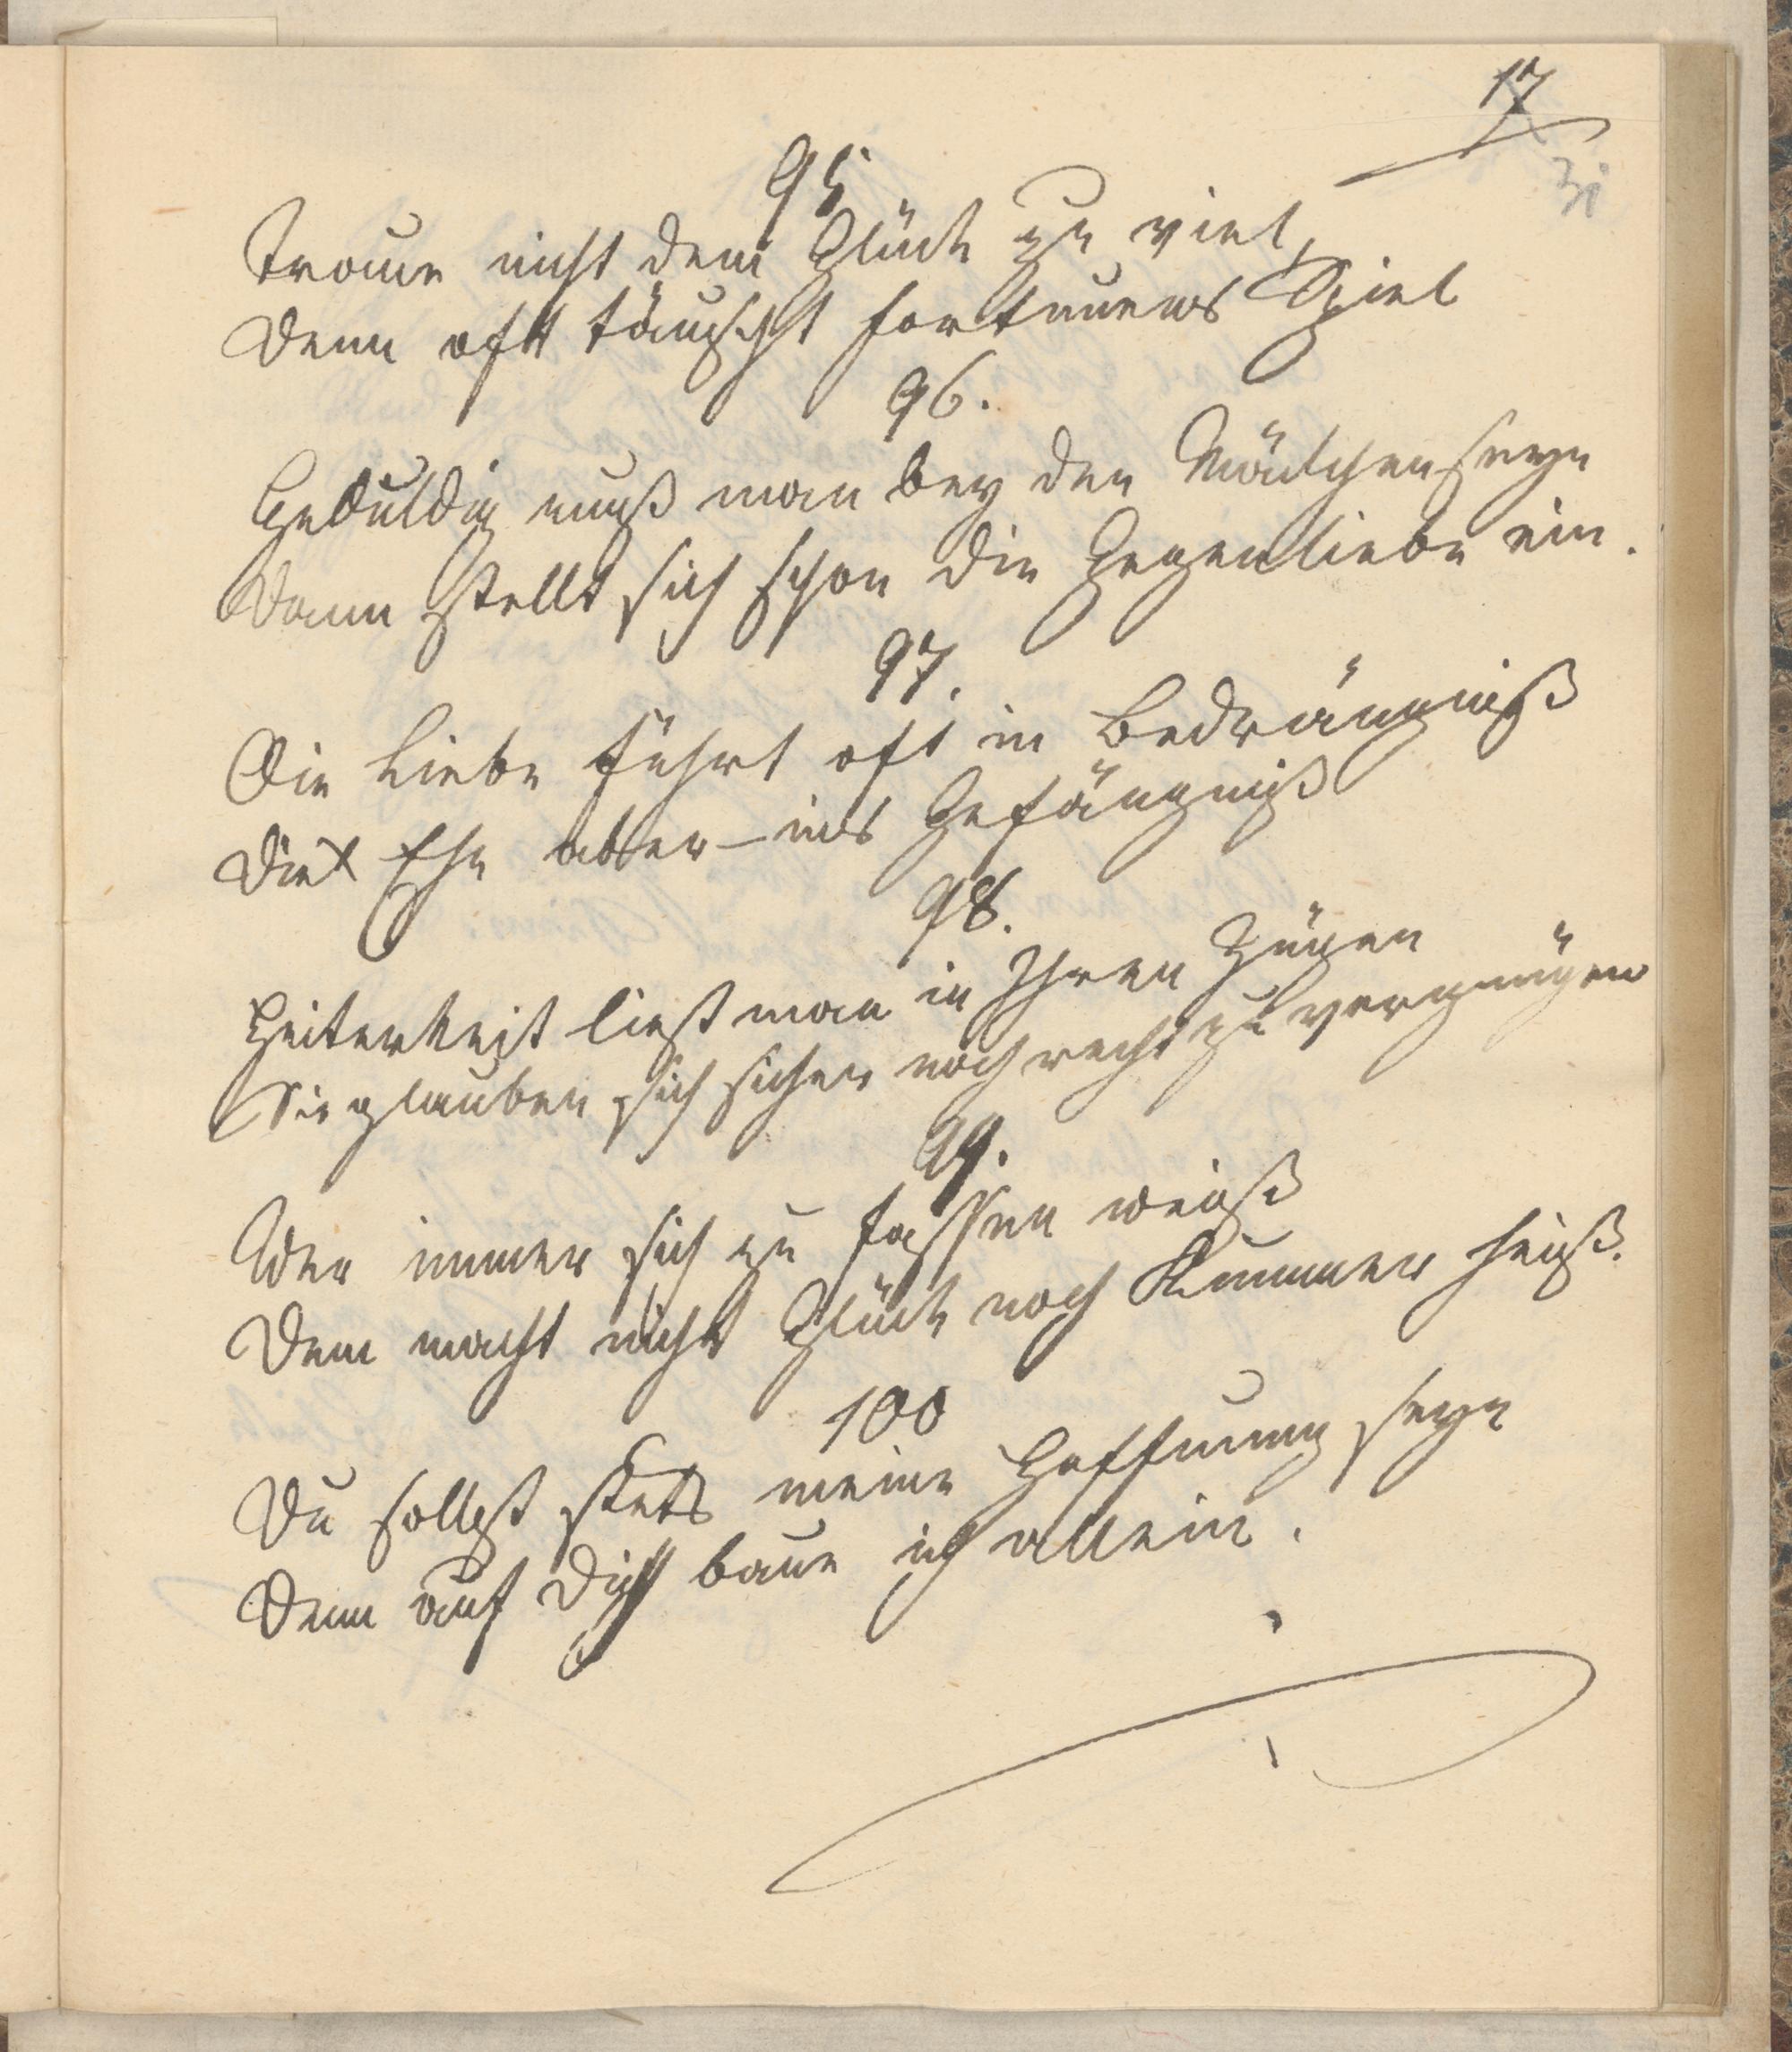 17
31
95
Traue nicht dem Glück zu viel,
Denn oft täuscht Fortunens Spiel
96.
Geduldig muß man bey den Mädchen seyn
Dann stellt sich schon die Gegenliebe ein.
97.
Die Liebe führt oft in Bedrängniß
Die Ehe aber – ins Gefängniß
98.
Heiterkeit ließt man in Ihren Zügen
Sie glauben sich sicher noch recht zu vergnügen
99.
Wer immer sich zu fassen weiß
Dem macht nicht Glück noch Kummer heiß.
100
Du sollst stets meine Hoffnung seyn
Denn auf Dich baue ich allein.